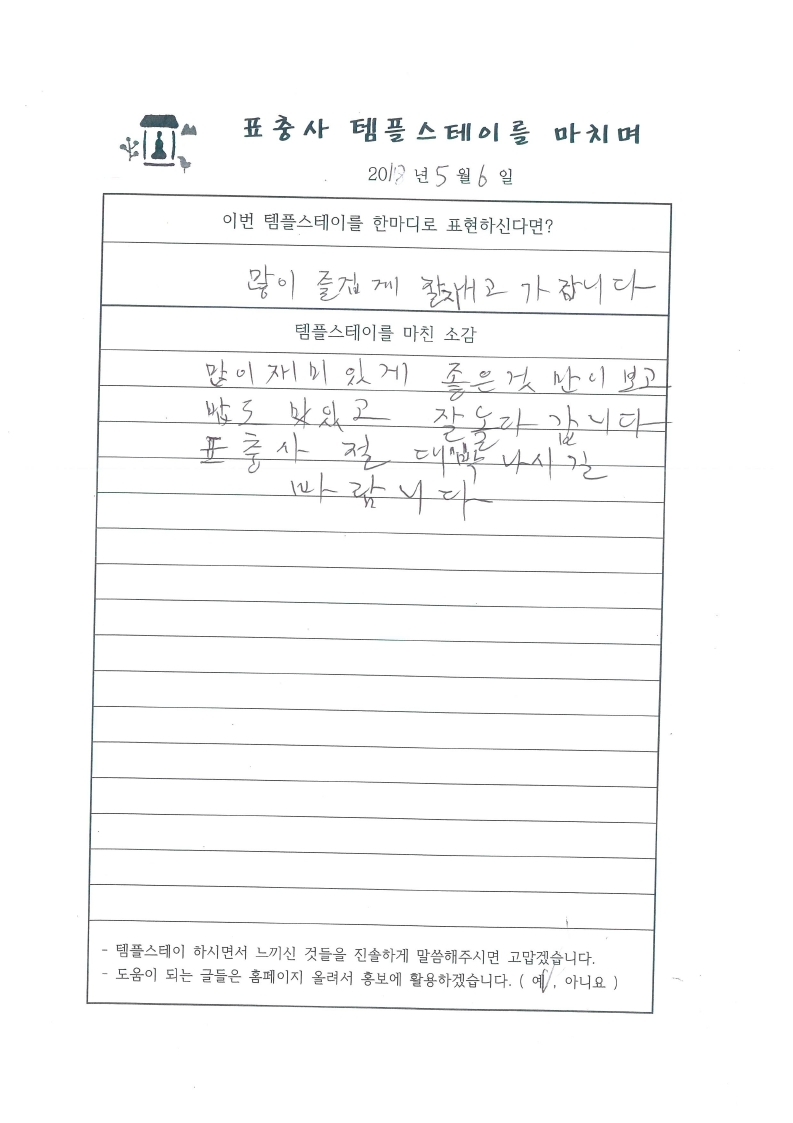 표충사 템플스테이를 마치며
2018년 5월 6일
이번 템플스테이를 한마디로 표현하신다면?
많이 즐겁게 가잡니다
템플스테이를 마친 소감
많이 재미있게 좋은것 만이 보고
밥도 맛있고 잘놀다 갑니다
표충사 절 대박 나시길
바랍니다
- 템플스테이 하시면서 느끼신 것들을 진솔하게 말씀해주시면 고맙겠습니다.
- 도움이 되는 글들은 홈페이지 올려서 홍보에 활용하겠습니다. ( 예, 아니요 )